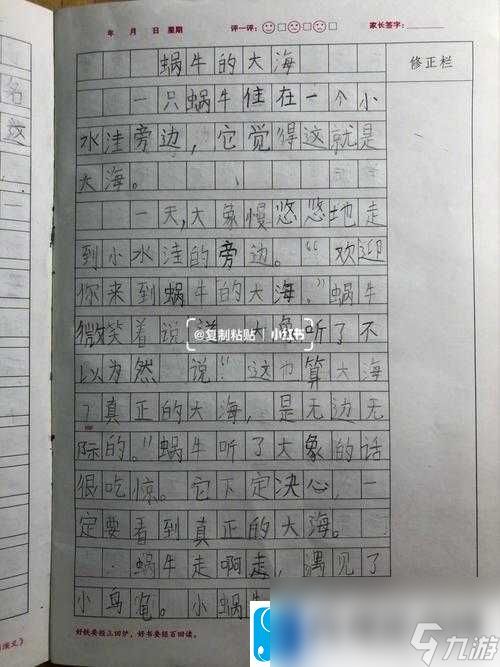 年 月 日 星期 评一评： 家长签字：
修正栏
蜗牛的大海
一只蜗牛住在一个小
水洼旁边，它觉得这就是
大海。
一天，大象慢悠悠地走
到小水洼的旁边。“欢迎
你来到蜗牛的大海。”蜗牛
微笑着说 大象听了不
@复制粘贴 小红书
以为然 说：“这也算大海
？真正的大海，是无边无
际的。”蜗牛听了大象的话
很吃惊。它下定决心，一
定要看到真正的大海。
蜗牛走啊走，遇见了
小乌龟。小蜗牛
好铁要经三回炉，好书要经百回读。
九游